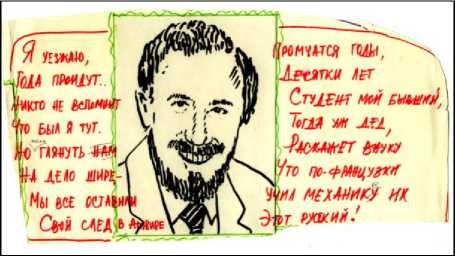 Я уезжаю,
Года пройдут..
Никто не вспомнит
Что был я тут.
Но глянуть нам
На дело шире-
Мы все оставили
Свой след в Алжире
Промчатся годы,
Десятки лет
Студент мой бывший,
Тогда уж дед,
Раскажет внуку
Что по-французки
Учил механику их
Этот русский!